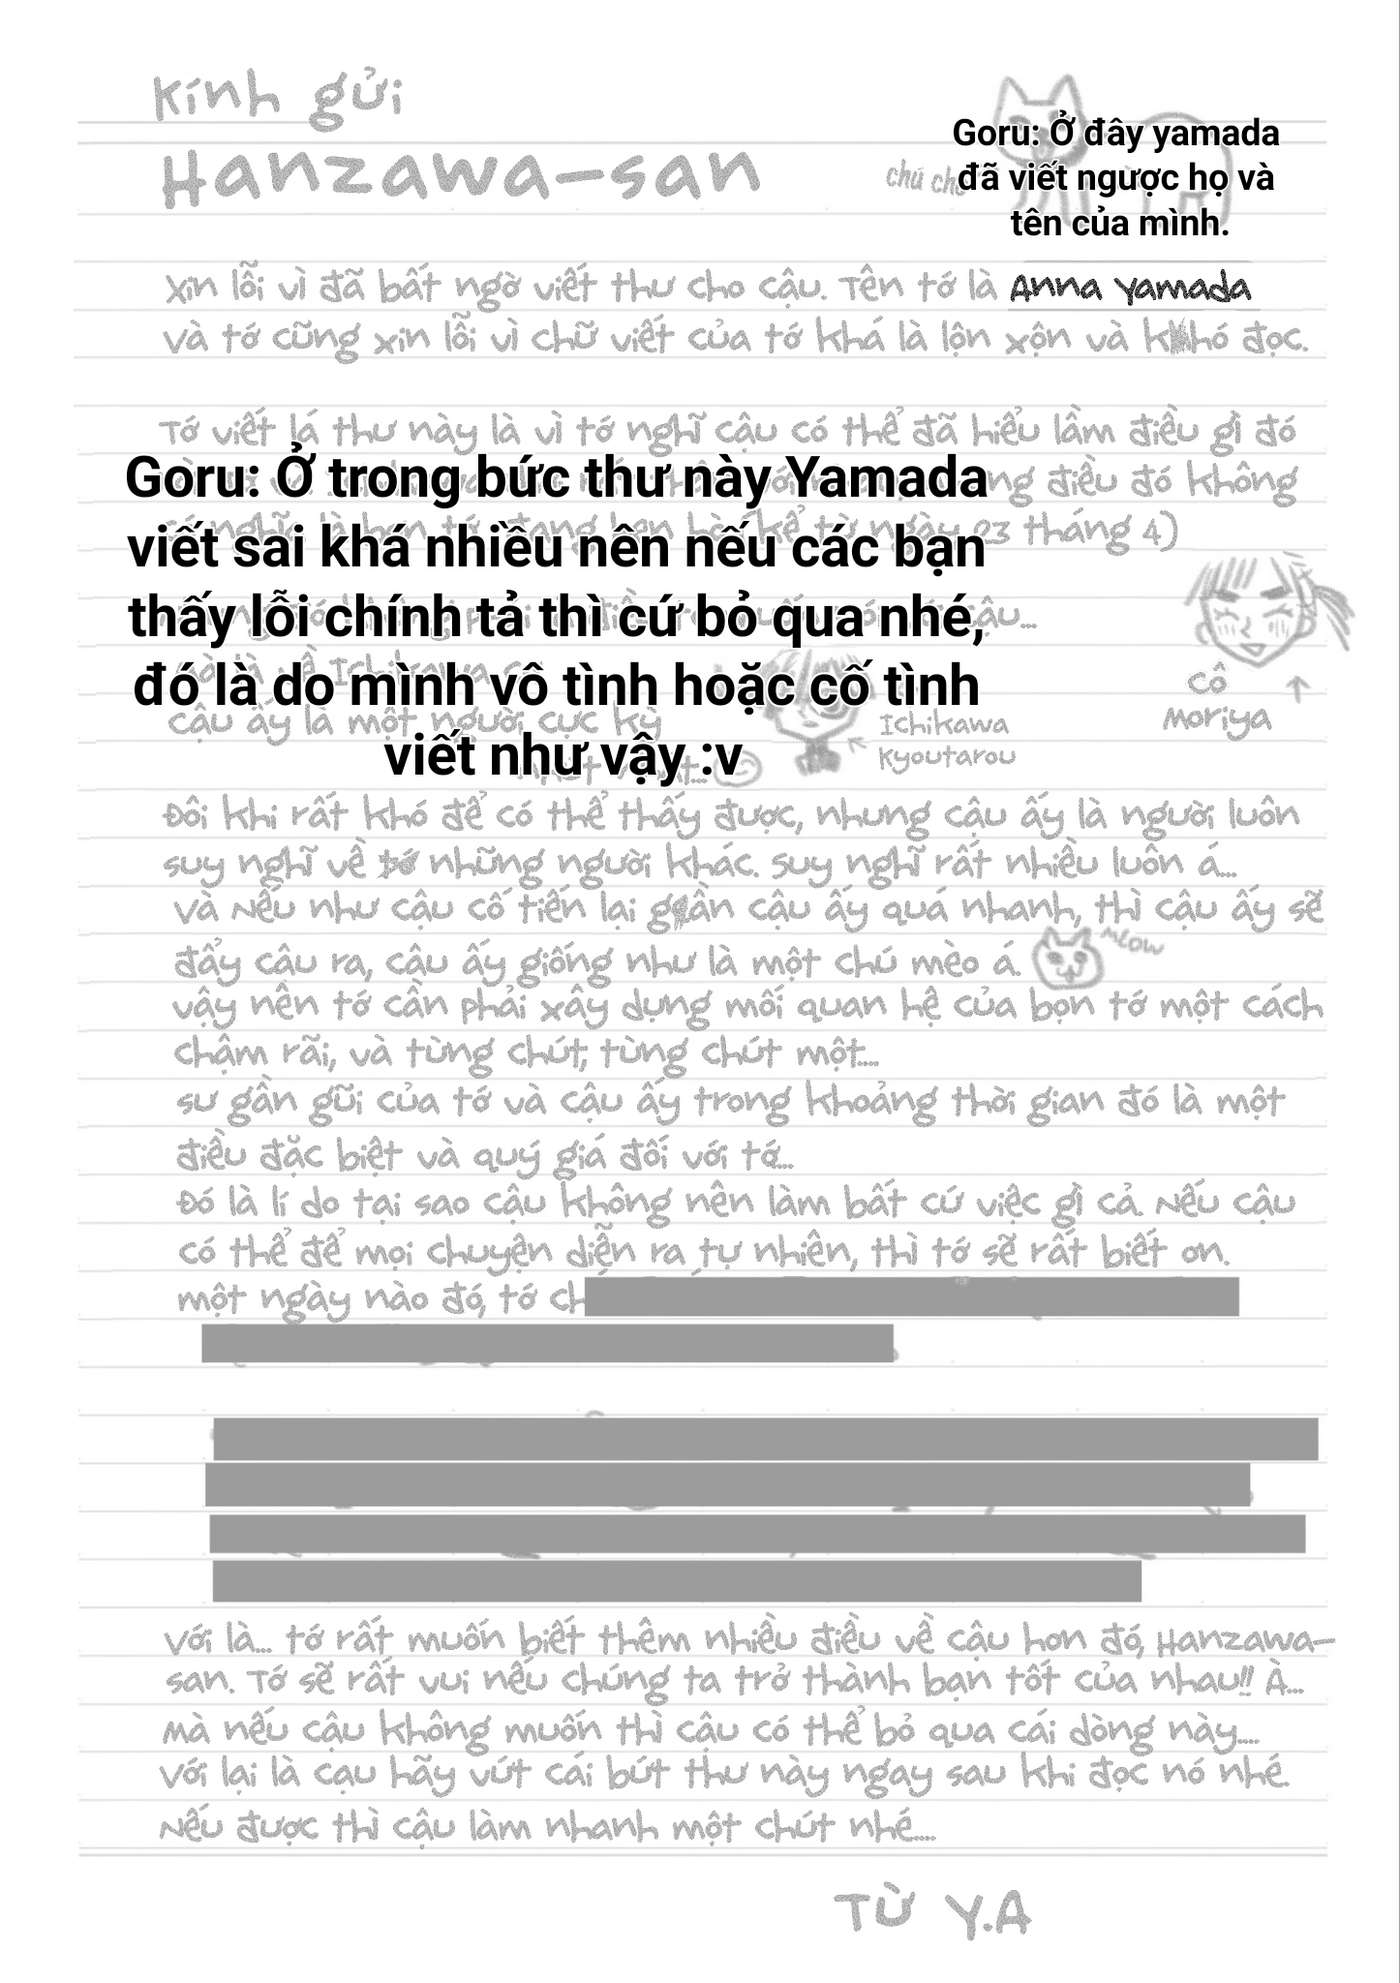 Kính gửi
Hanzawa-san
chú chó
Goru: Ở đây yamada
đã viết ngược họ và
tên của mình.
Xin lỗi vì đã bất ngờ viết thư cho cậu. Tên tớ là Anna Yamada
Và tớ cũng xin lỗi vì chữ viết của tớ khá là lộn xộn và khó đọc.
Tớ viết lá thư này là vì tớ nghĩ cậu có thể đã hiểu lầm điều gì đó
điều đó không
kể từ ngày 23 tháng 4)
Goru: Ở trong bức thư này Yamada
viết sai khá nhiều nên nếu các bạn
thấy lỗi chính tả thì cứ bỏ qua nhé,
đó là do mình vô tình hoặc cố tình
viết như vậy :v
cậu...
Cậu ấy là một người cực kỳ
Ichikawa
Kyoutarou
Cô
Moriya
Đôi khi rất khó để có thể thấy được, nhưng cậu ấy là người luôn
suy nghĩ về tớ những người khác. Suy nghĩ rất nhiều luôn á...
Và Nếu như cậu cố tiến lại gần cậu ấy quá nhanh, thì cậu ấy sẽ
đẩy câu ra, cậu ấy giống như là một chú mèo á.
Meow
Vậy nên tớ cần phải xây dựng mối quan hệ của bọn tớ một cách
chậm rãi, và từng chút, từng chút một....
sư gần gũi của tớ và cậu ấy trong khoảng thời gian đó là một
điều đặc biệt và quý giá đối với tớ...
Đó là lí do tại sao cậu không nên làm bất cứ việc gì cả. Nếu cậu
có thể để mọi chuyện diễn ra tự nhiên, thì tớ sẽ rất biết ơn.
một ngày nào đó, tớ ch
Với là... tớ rất muốn biết thêm nhiều điều về cậu hơn đó, Hanzawa-
san. Tớ sẽ rất vui nếu chúng ta trở thành bạn tốt của nhau!! À...
Mà nếu cậu không muốn thì cậu có thể bỏ qua cái dòng này....
Với lại là cạu hãy vứt cái bứt thư này ngay sau khi đọc nó nhé.
Nếu được thì cậu làm nhanh một chút nhé....
TỪ Y.A